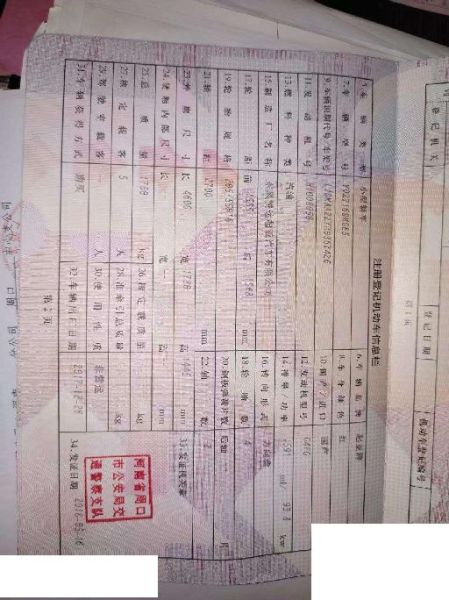 登记机关
登记日期
机动车登记编号
第1页
注册登记机动车信息栏
5.车辆类型 小型轿车 6.车辆品牌 起亚牌
7.车辆型号 8.车身颜色 红
9.车辆识别代号/车架号 10.国产/进口 国产
11.发动机号 12.发动机型号 G4FG
13.燃料种类 汽油 14.排量/功率 1591 ml/ 93.8 kw
15.制造厂名称 东风悦达起亚汽车有限公司 16.转向形式 方向盘
17.轮距 前 后 mm 18.轮胎数 4
19.轮胎规格 205/55R16 20.钢板弹簧片数 后轴 片
21.轴距 2700 mm 22.轴数 2
23.外廓尺寸 长 4600 宽 高 mm 33.发证机关章
24.货厢内部尺寸 长 宽 高 mm
河南省周口
市公安局交
通警察支队
25.总质量 kg 26.核定载质量 kg
27.核定载客 5 人 28.准牵引总质量 kg
29.驾驶室载客 人 30.使用性质 非营运
31.车辆获得方式 购买 32.车辆出厂日期 2017-12-28 34.发证日期
第2页